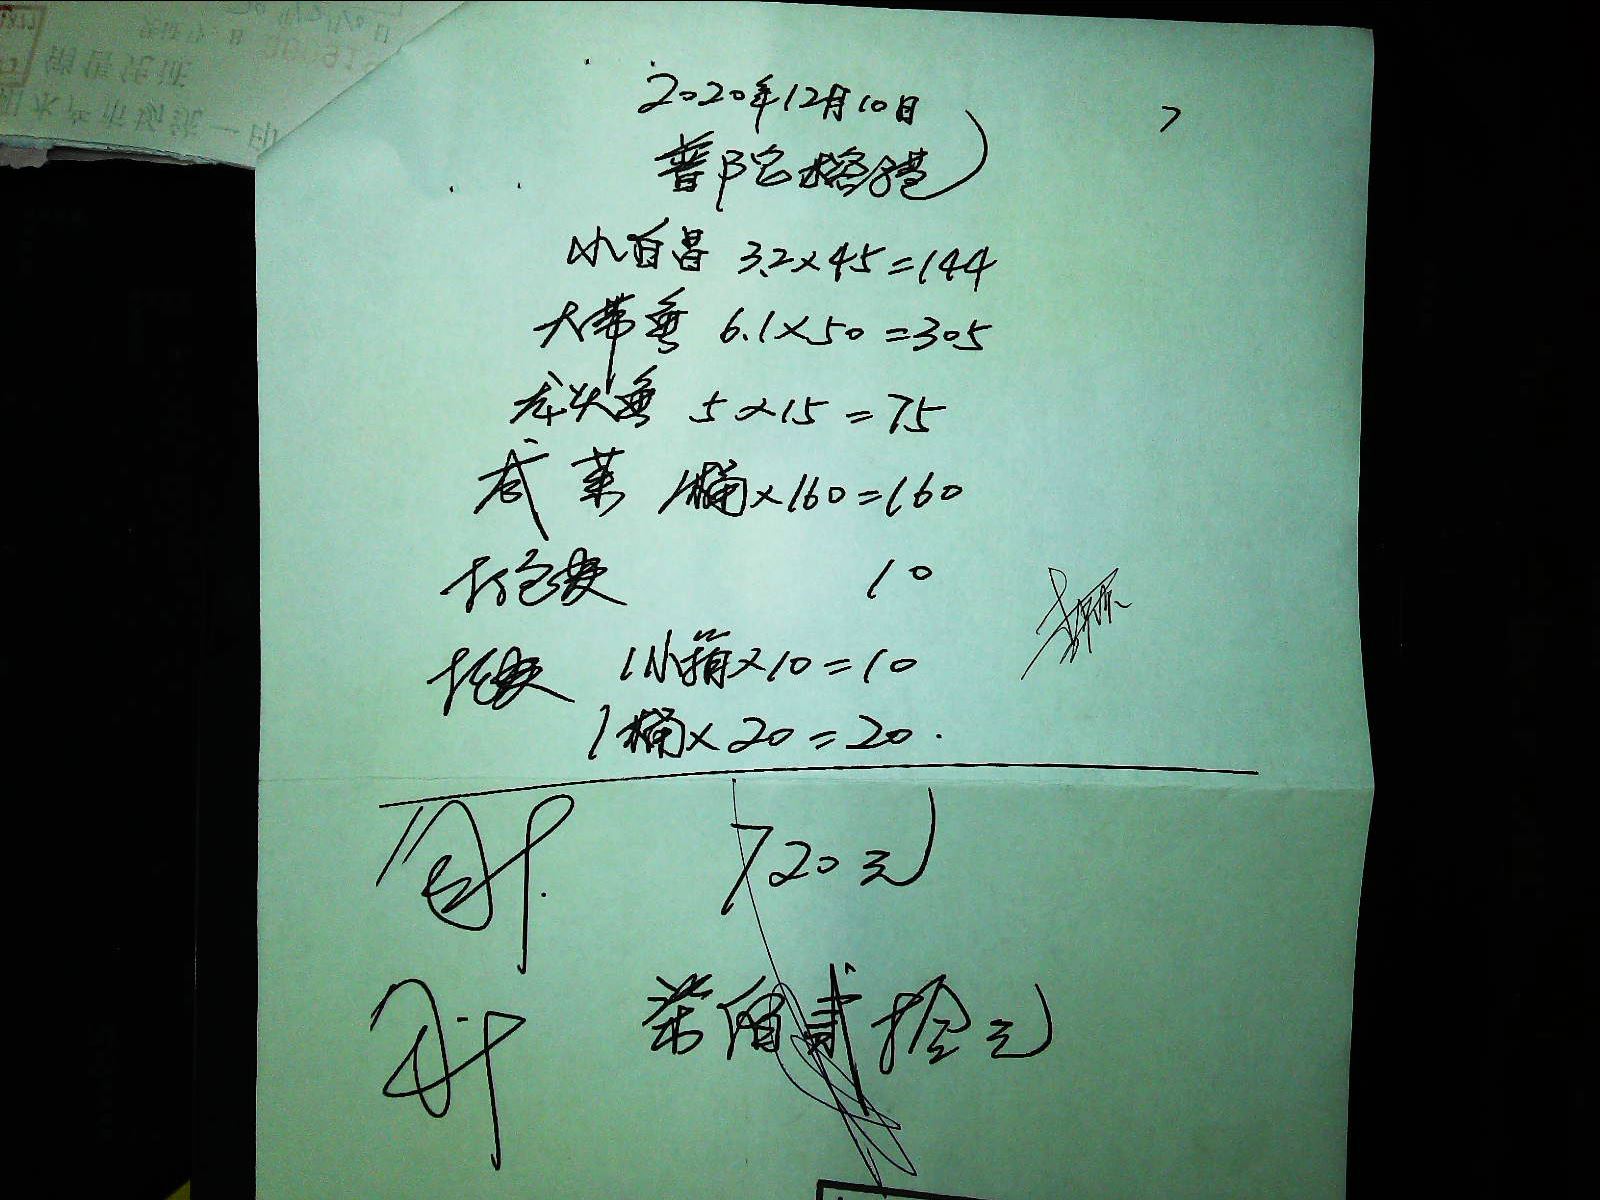 2020年12月10日
普陀
小白昌 3.2×45=144
大带鱼 6.1×50=305
龙头鱼 5×15=75
咸菜 1桶×160=160
打包费 10
托费 1小箱×10=10
1桶×20=20.
合计 720元
合计 柒佰贰拾元